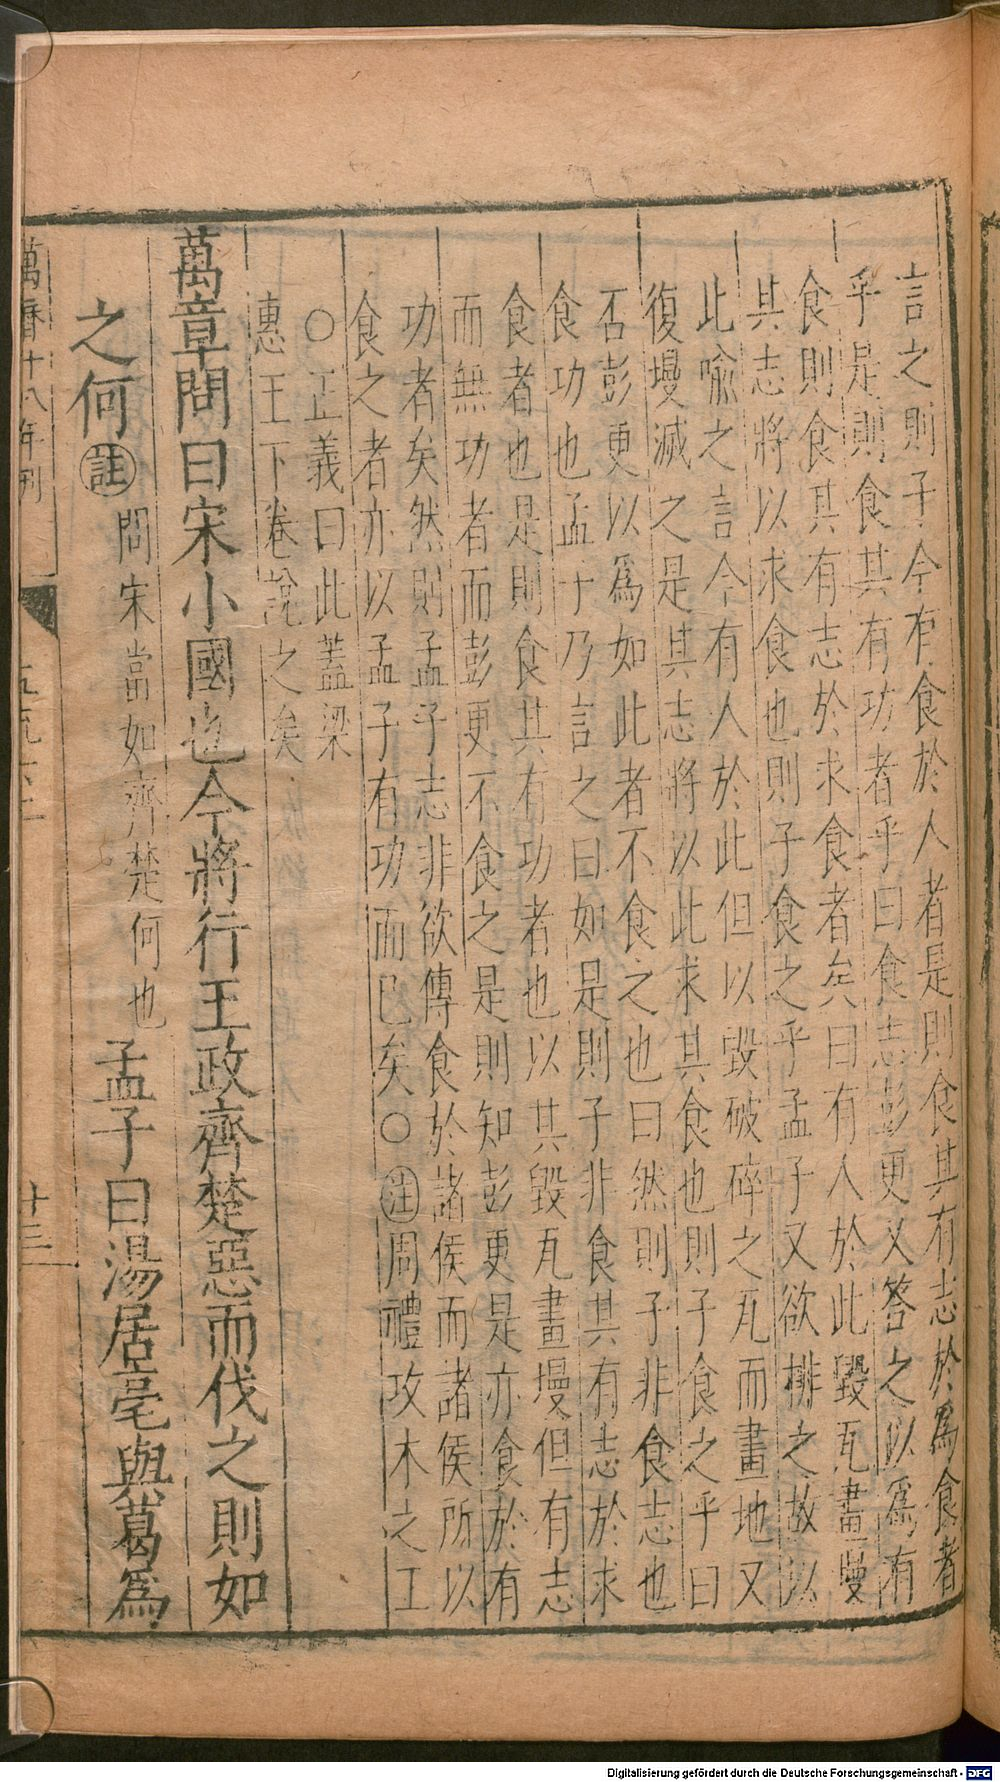 言之則子今有食於人者是則食其有志於爲食者
乎是則食其有功者乎曰食志彭更又答之以爲有
食則食其有志於求食者矣曰有人於此毀瓦畫墁
其志將以求食也則子食之乎孟子又欲排之故以
此喩之言今有人於此但以毀破碎之瓦而畫地又
復墁滅之是其志將以此求其食也則子食之乎曰
否彭更以爲如此者不食之也曰然則子非食志也
食功也孟子乃言之曰如是則子非食其有志於求
食者也是則食其有功者也以其毀瓦畫墁但有志
而無功者而彭更不食之是則知彭更是亦食於有
功者矣然則孟子志非欲傳食於諸侯而諸侯所以
食之者亦以孟子有功而已矣○注周禮攻木之工
○正義曰此蓋梁
惠王下卷說之矣
萬章問曰宋小國也今將行王政齊楚惡而伐之則如
之何註問宋當如齊楚何也孟子曰湯居亳與葛爲
萬曆十八年刊
十三
Digitalisierung gefördert durch die Deutsche Forschungsgemeinschaft - DFG